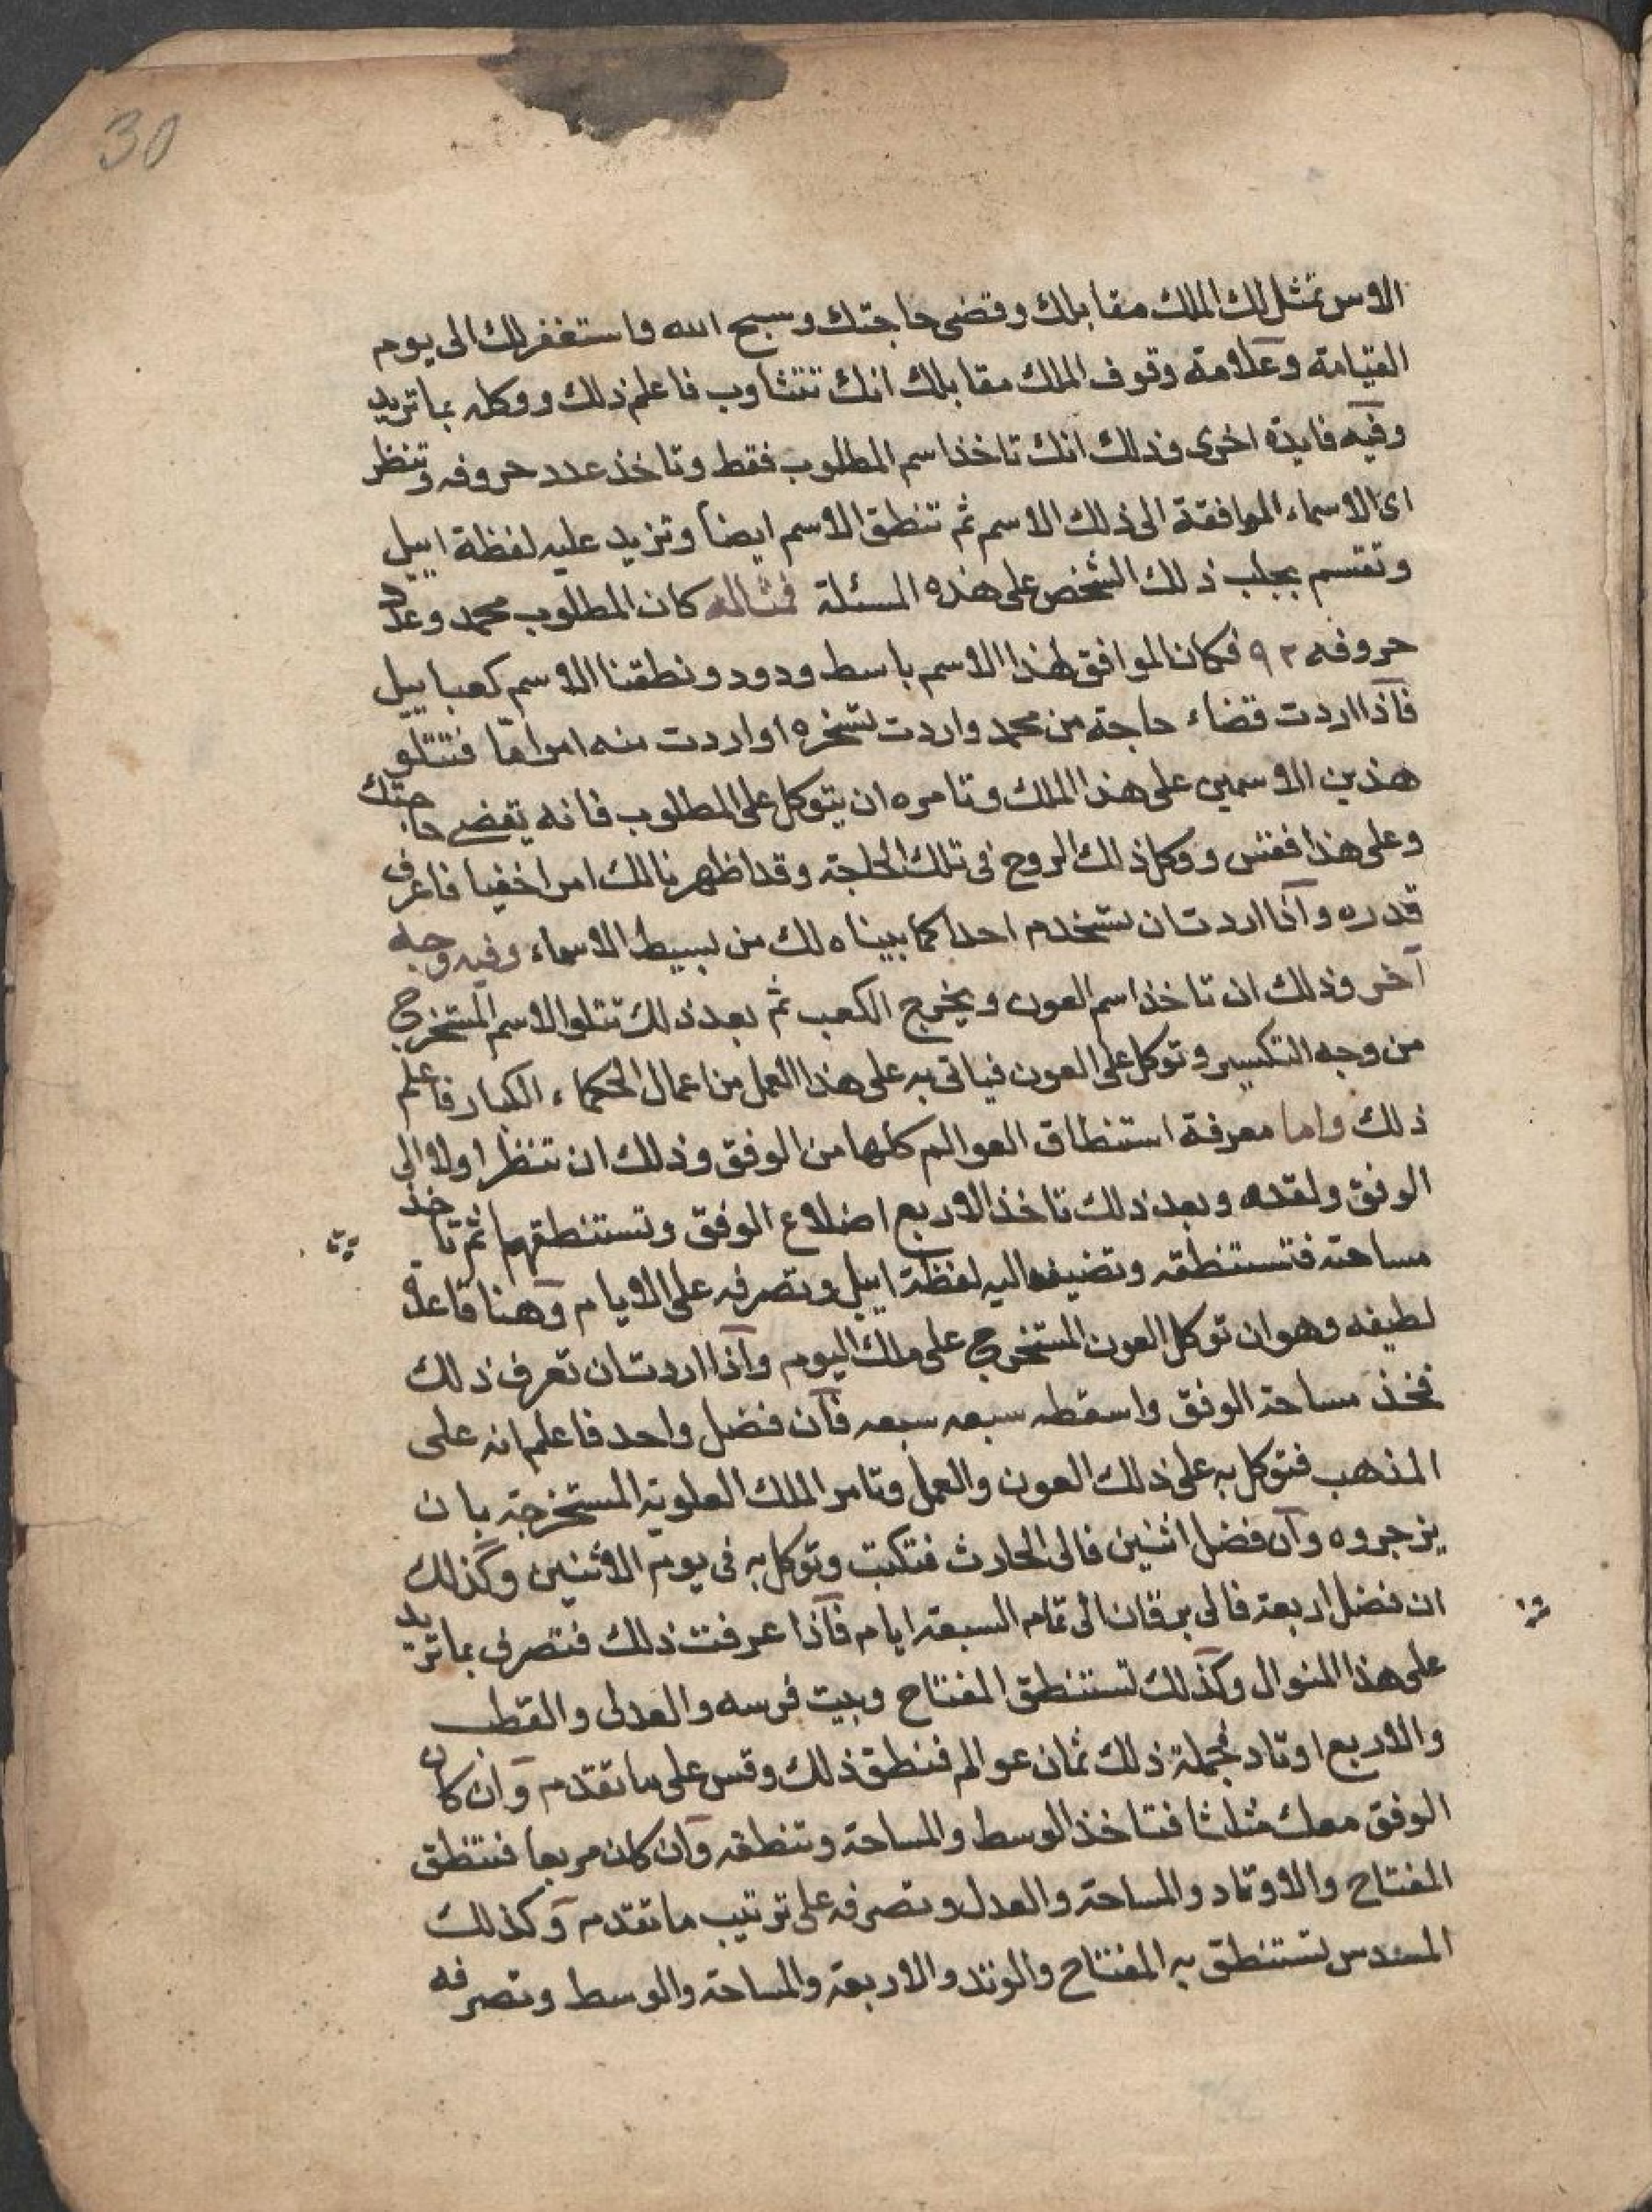 30
الاسر تمثل لك الملك مقابلك وقضى حاجتك وسبح الله واستغفر لك الى يوم
القيامة وعلامة وقوف الملك مقابلك انك تتثاوب فاعلم ذلك ووكله بما تريد
وفيه فايدة اخرى وذلك انك تاخذ اسم المطلوب فقط وتاخذ عدد حروفه وتنظر
اى الاسماء الموافقة الى ذلك الاسم ثم تنطق الاسم ايضا وتزيد عليه لفظة اييل
وتقسم بجلب ذلك الشخص على هذه المسئلة فمثاله كان المطلوب محمد وعدد
حروفه ٩٢ فكان الموافق لهذا الاسم باسط ودود ونطقنا الاسم كعباييل
فاذا اردت قضاء حاجة من محمد واردت تسخره او اردت منه امرا مّا فتتلو
هذين الاسمين على هذا الملك وتامره ان يتوكل على المطلوب فانه يقضى حاجتك
وعلى هذا فقس ووكل ذلك الروح فى تلك الحاجة وقد اظهرنا لك امرا خفيا فاعرف
قدره واذا اردت ان تستخدم احدا كما بيناه لك من بسيط الاسماء وفيه وجه
آخر وذلك ان تاخذ اسم العون ويخرج الكعب ثم بعد ذلك تتلو الاسم المستخرج
من وجه التكسير وتوكل على العون فياتى به على هذا العمل من اعمال الحكماء الكبار فاعلم
ذلك واما معرفة استنطاق العوالم كلها من الوفق وذلك ان تنظر اولا الى
الوفق ولقده وبعد ذلك تاخذ الاربع اضلاع الوفق وتستنطقها ثم تاخذ
مساحته فتستنطقه وتضيف اليه لفظة اييل وتصرفه على الايام وهنا قاعدة
لطيفه وهو ان توكل العون المستخرج على ملك اليوم واذا اردت ان تعرف ذلك
فخذ مساحة الوفق واسقطه سبعه سبعه فان فضل واحد فاعلم انه على
المذهب فتوكل به على ذلك العون والعمل وتامر الملك العلوية المستخرجة بان
يزجروه وان فضل اثنين فالى الحارث فتكتب وتوكل به فى يوم الاثنين وكذلك
ان فضل اربعة فالى برقان الى تمام السبعة ايام فاذا عرفت ذلك فتصرف بما تريد
على هذا المنوال وكذلك تستنطق المفتاح وبيت فرسه والعدل والقطب
والاربع اوتاد فجملة ذلك ثمان عوالم فنطق ذلك وقس على ما تقدم وان كان
الوفق معك مثلثا فتاخذ الوسط والمساحة وتنطقه وان كان مربعا فتنطق
المفتاح والاوتاد والمساحة والعدل وتصرفه على ترتيب ما تقدم وكذلك
المسدس تستنطق به المفتاح والوتد والاربعة والمساحة والوسط وتصرفه